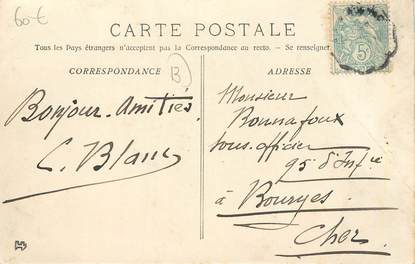 60 €
CARTE POSTALE
Tous les Pays étrangers n'acceptent pas la Correspondance au recto. — Se renseigner
CORRESPONDANCE
B
ADRESSE
5c
Bonjour. Amitiés
C. Blanc
Monsieur
Bonnafoux
sous. officier
95 d'Infie
à Bourges
Cher